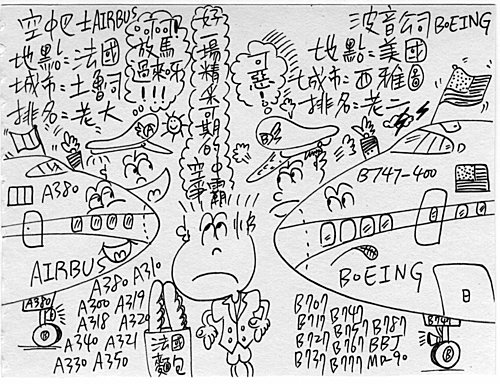 空中巴士AIRBUS
地點:法國
城市:土魯司
排名:老大
呵呵
放馬
過來呀
!!!
好一場精采可期的
空中爭霸
可惡
波音公司BOEING
地點:美國
城市:西雅圖
排名:老二
A380
AIRBUS
B747-400
BOEING
B
A380
A380 A310
A300 A319
A318 A320
A340 A321
A330 A350
法國
麵包
B707 B747
B717 B757 B787
B727 B767 BBJ
B737 B777 MD-90
B747